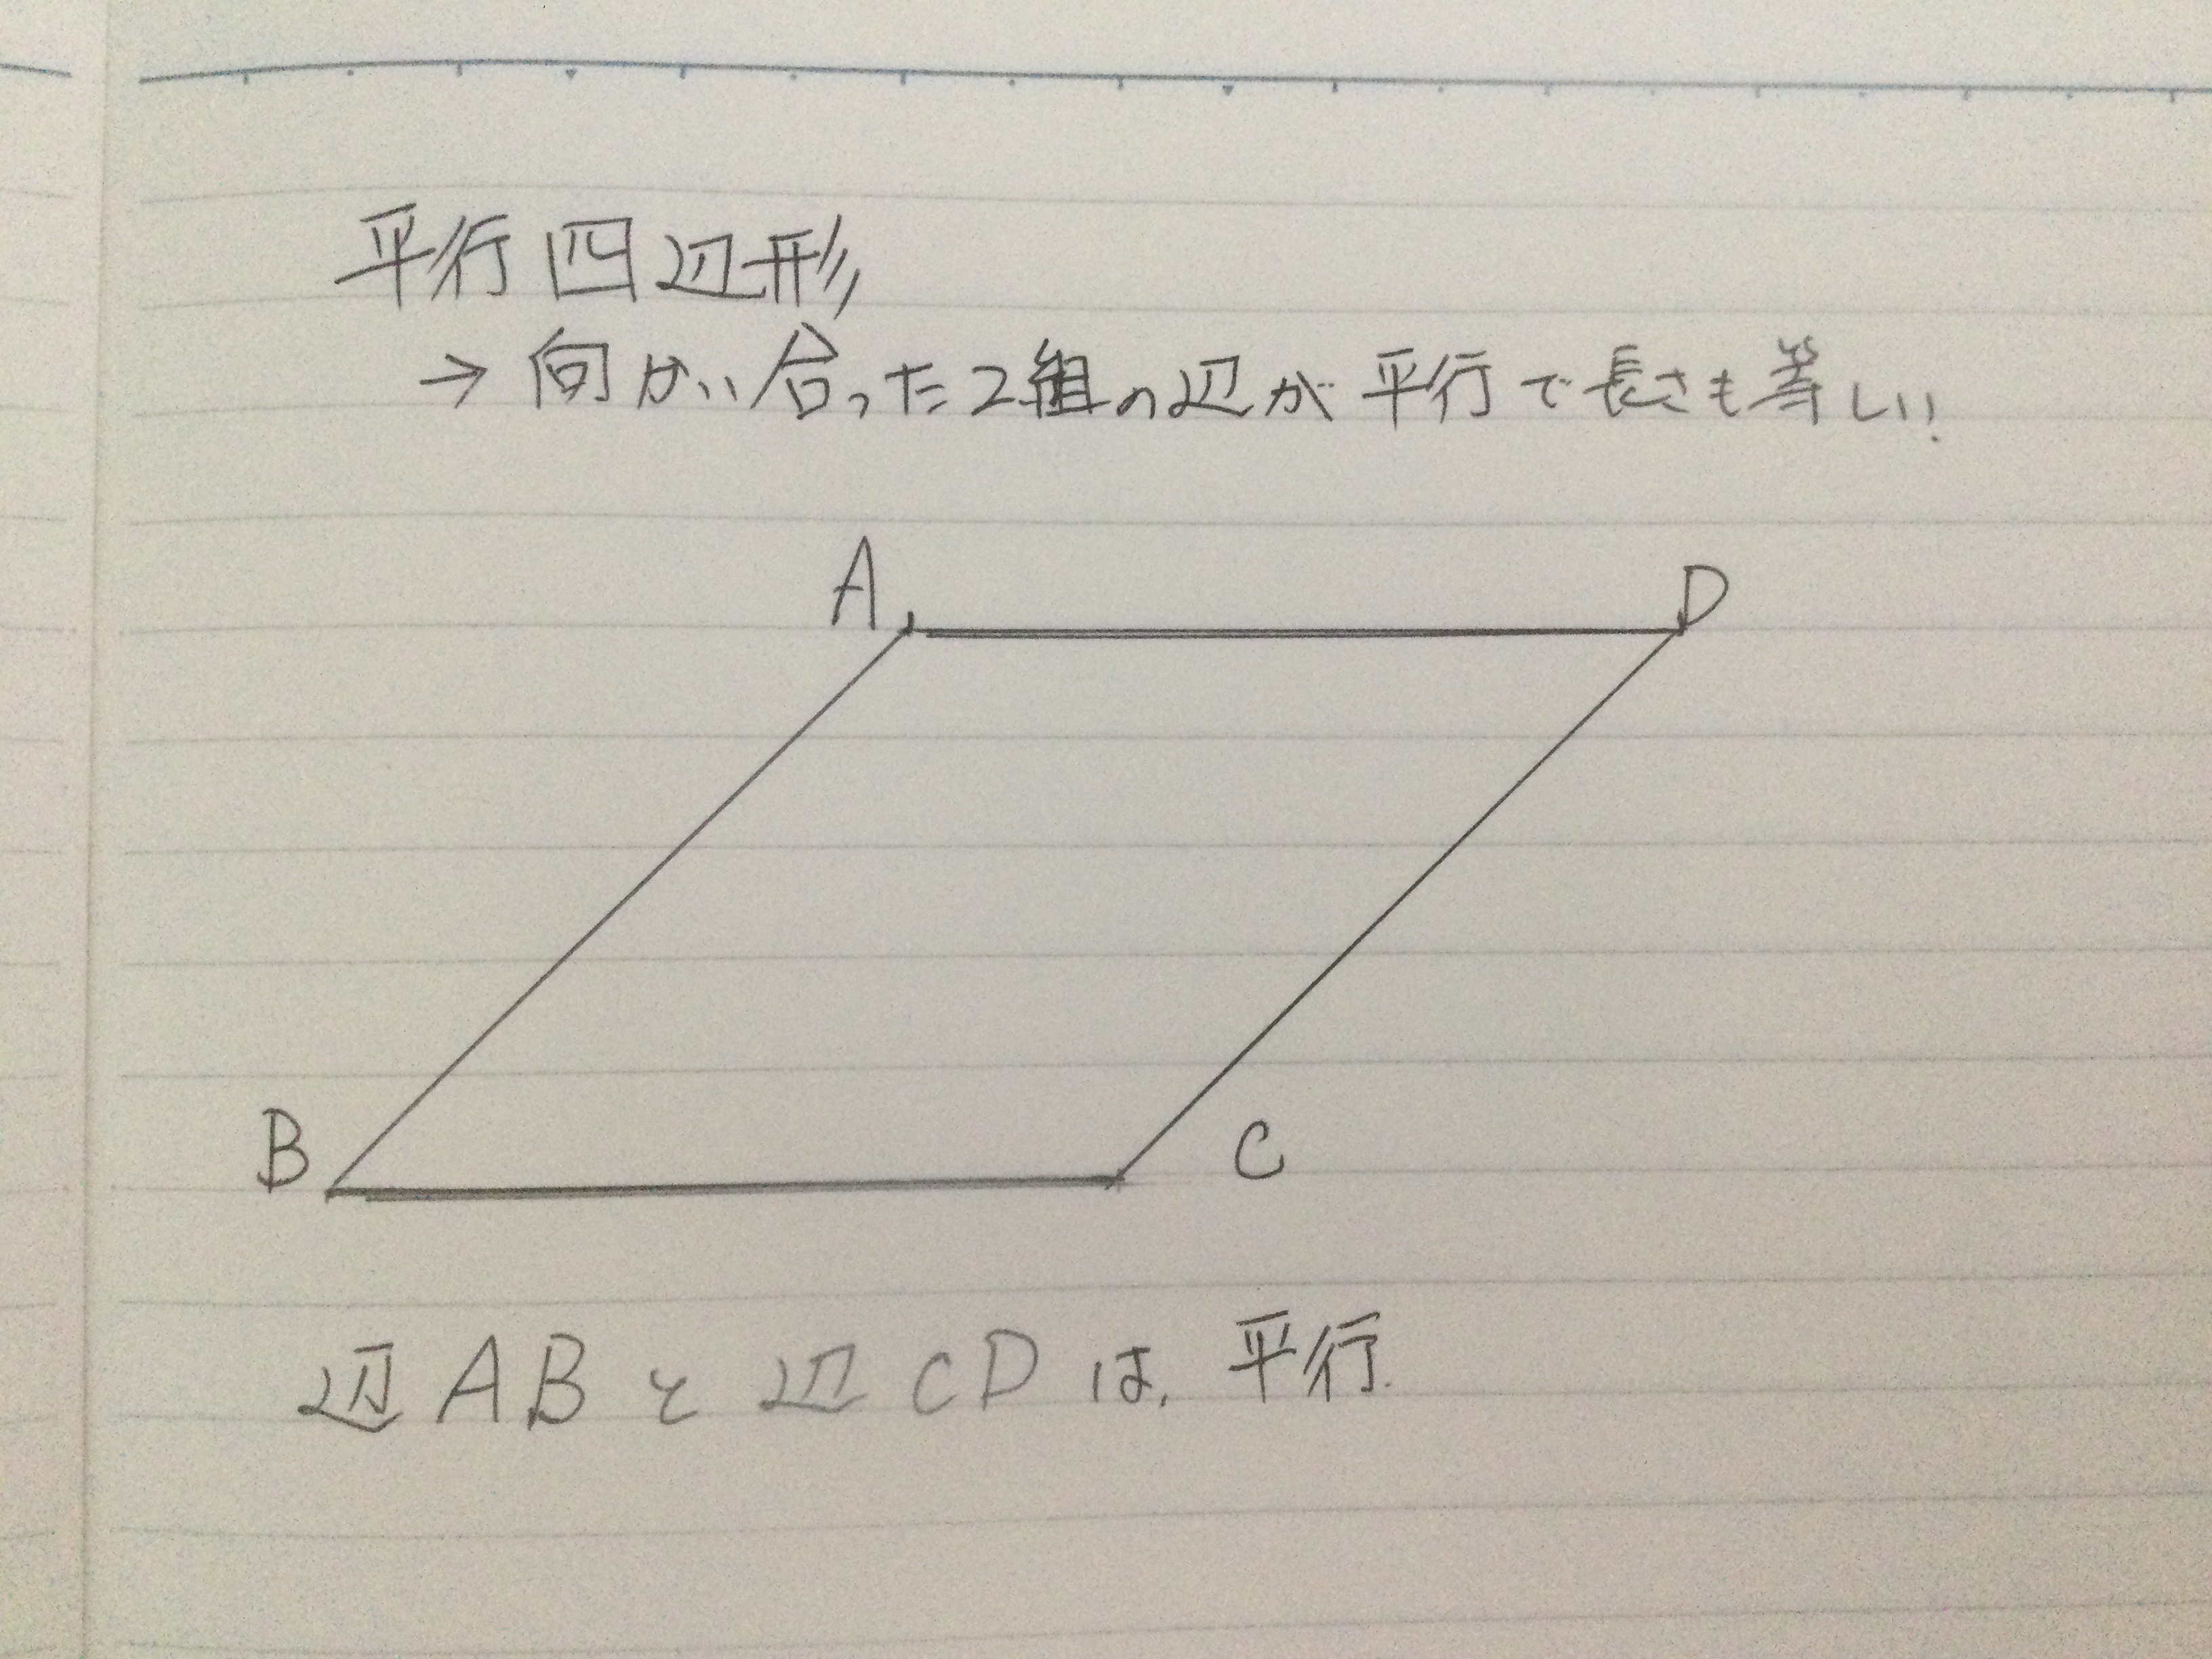 平行四辺形
→向かい合った2組の辺が平行で長さも等しい.
A
D
B
C
辺ABと辺CDは,平行.